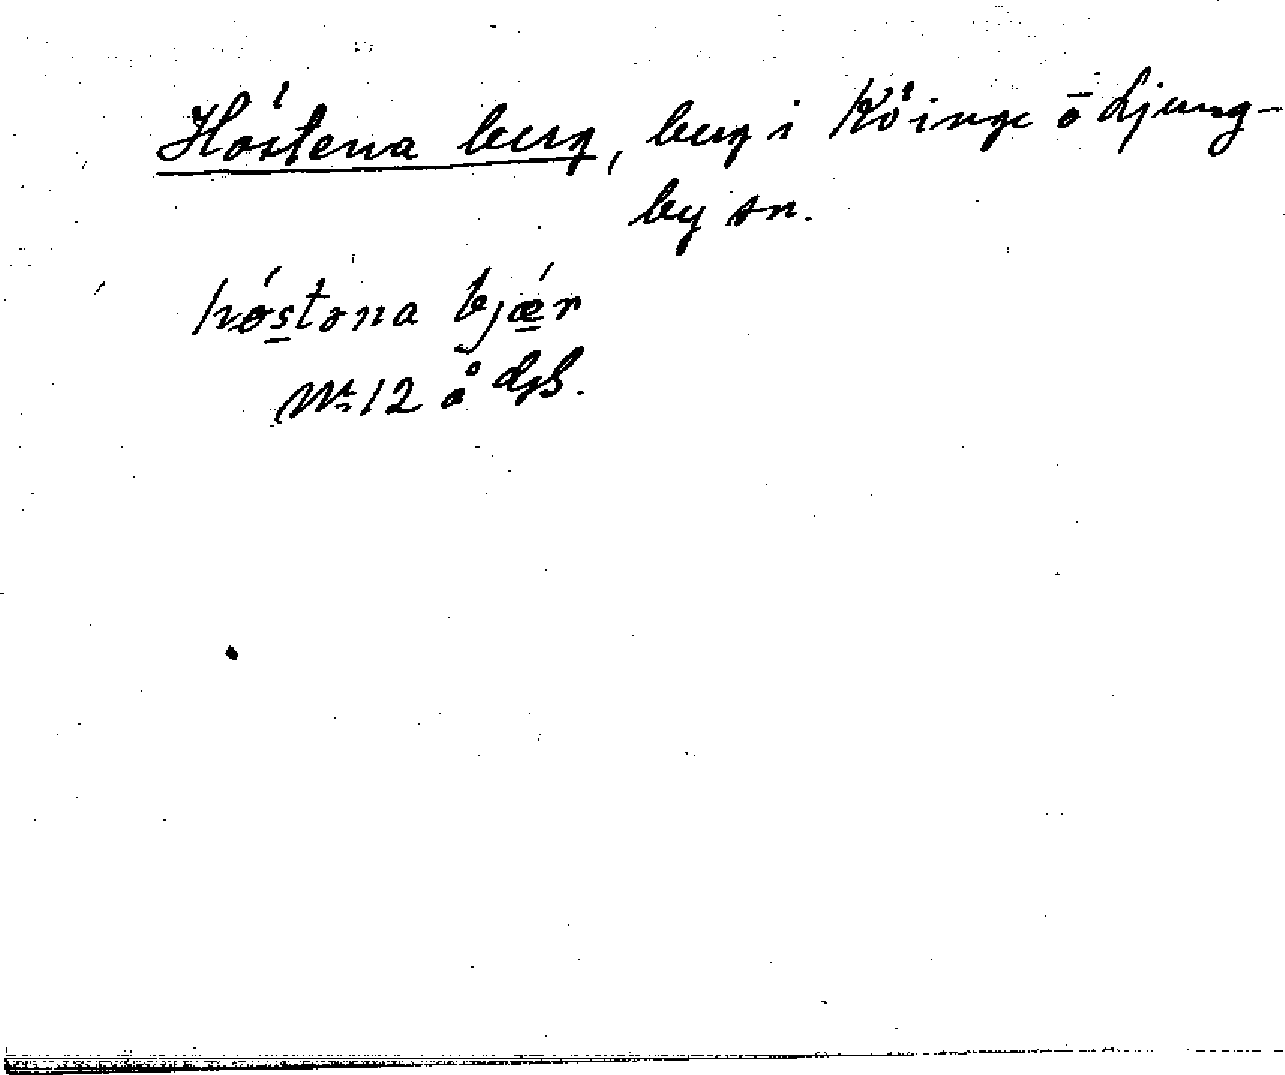 Hóstena berg, berg i Köinge o Ljung-
by sn.
hóstona bjǽr
Nr. 12 å